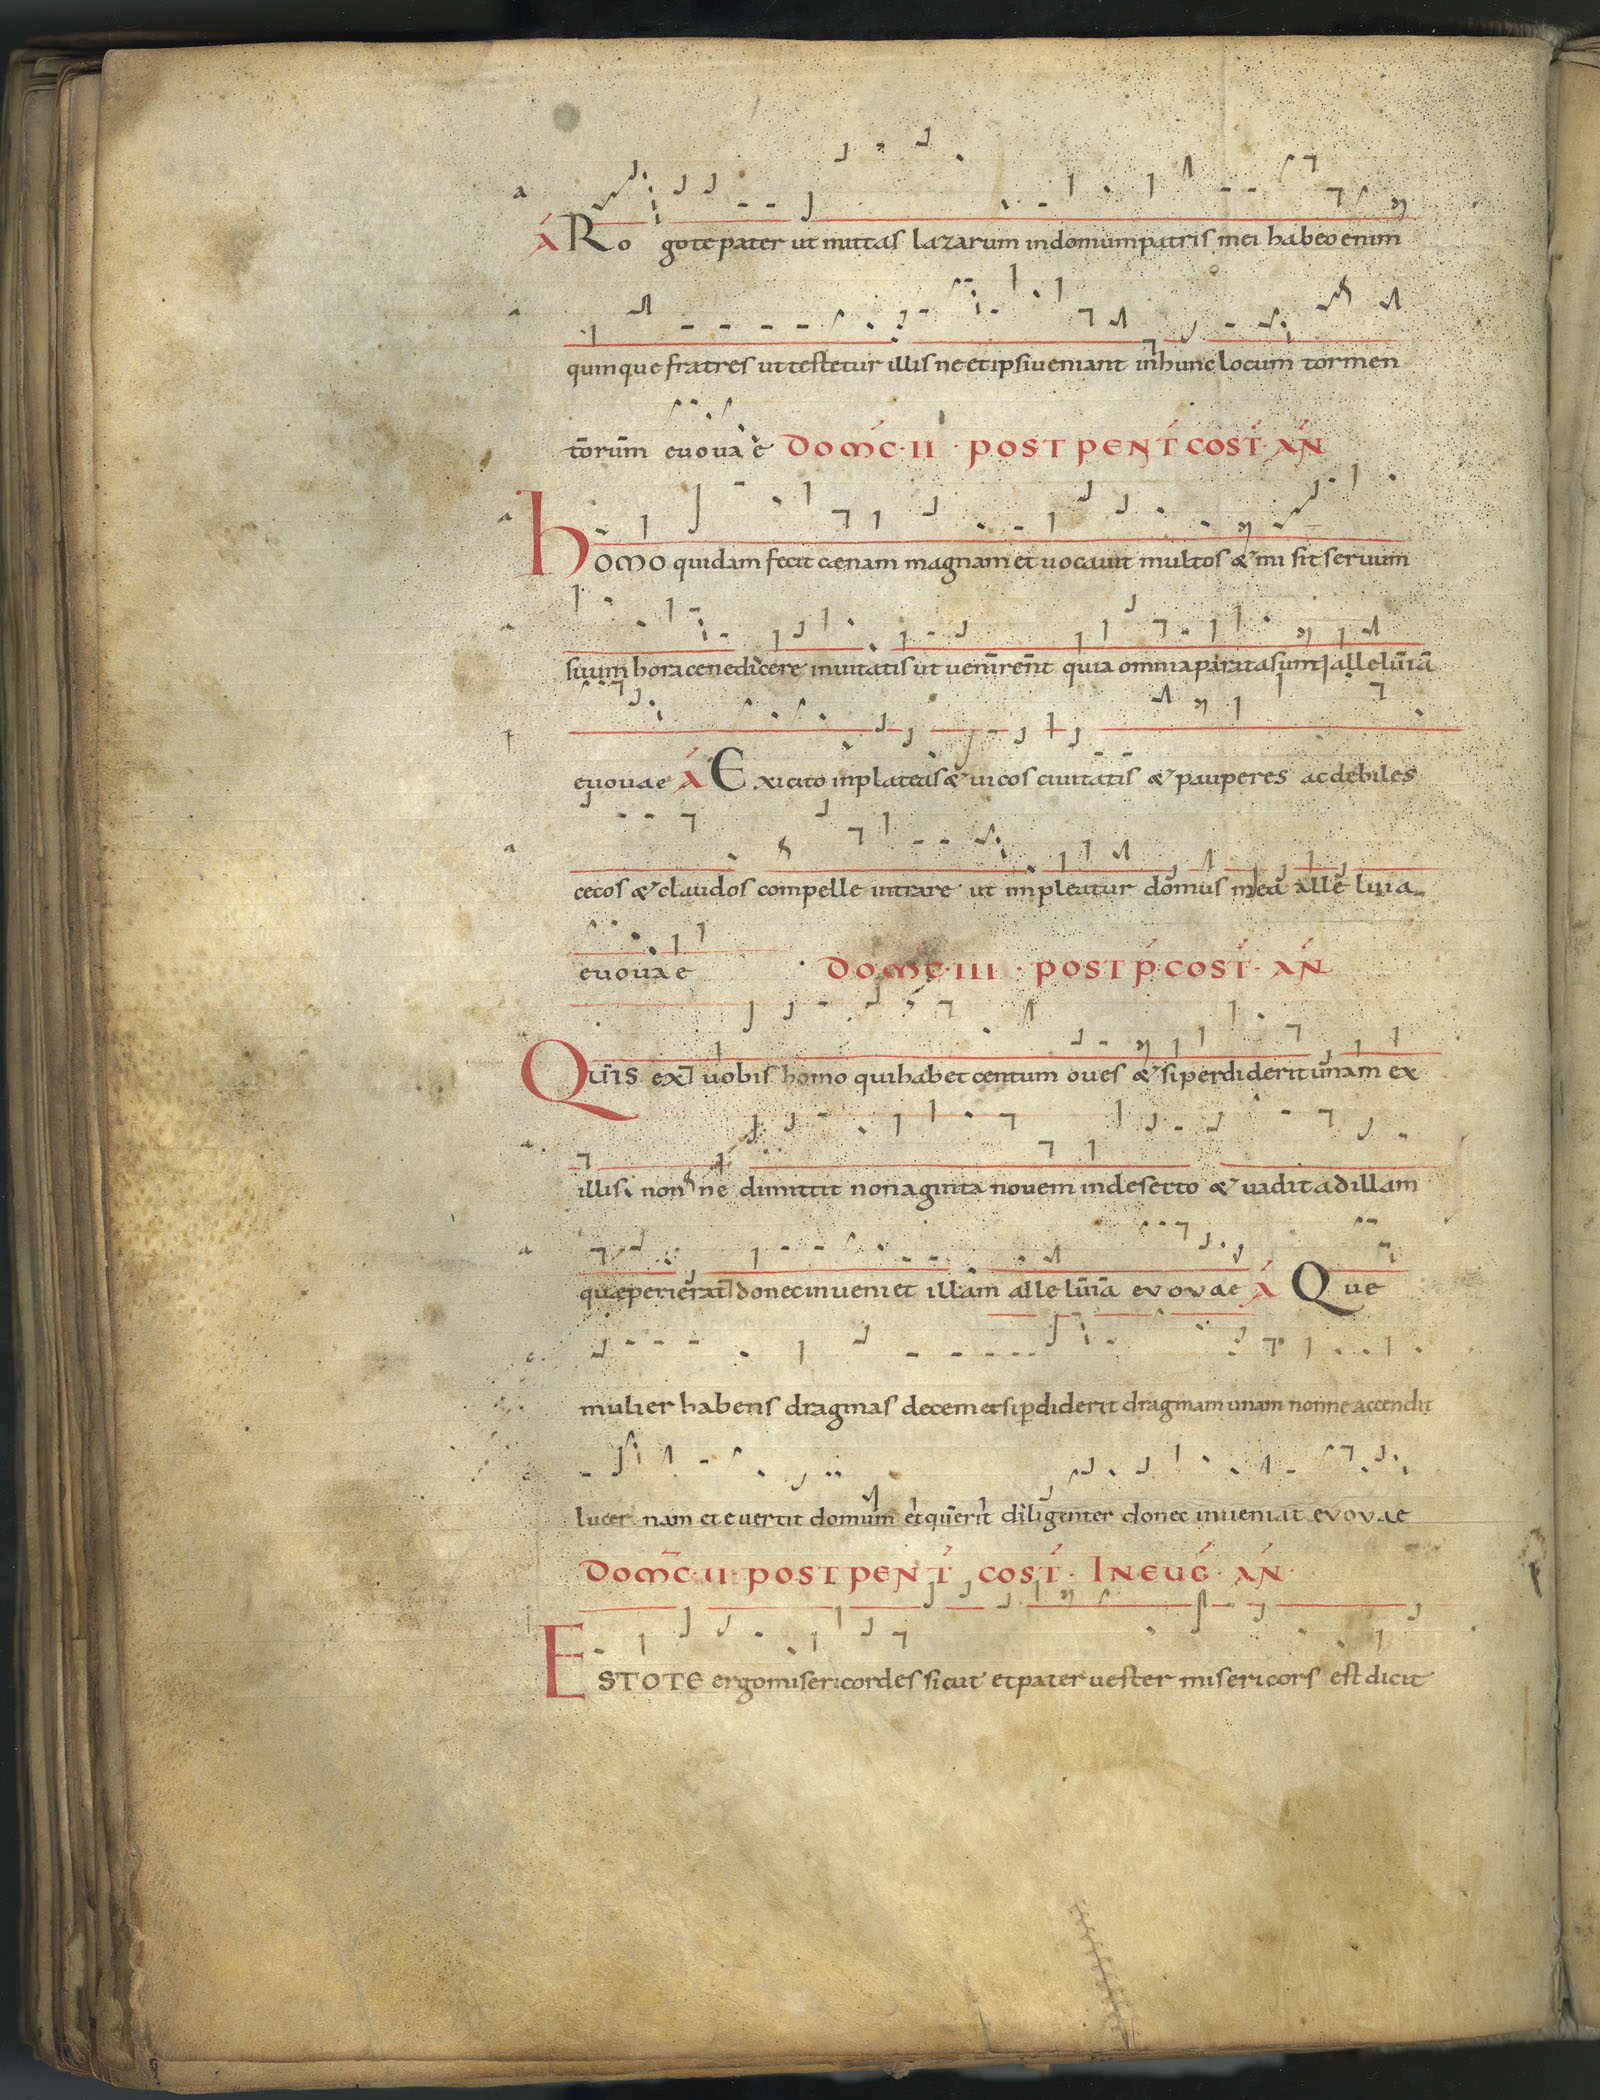 a
A Rogo te pater ut mittas lazarum in domum patris mei habeo enim
a
quinque fratres ut testetur illis ne et ipsi veniant in hunc locum tormen
torum euouae DOMC·II·POST PENTCOST·AN
a
homo quidam fecit cænam magnam et uocauit multos & misit seruum
a
suum hora cene dicere inuitatis ut uenirent quia omnia parata sunt alleluia
f
euouae A Exi cito in plateas & uicos ciuitatis & pauperes ac debiles
a
cecos & claudos compelle intrare ut impleatur domus mea alleluia
euouae DOMC·III·POST P·COST·AN
QUIS ex uobis homo qui habet centum oues & si perdiderit unam ex
a
illis nonne dimittit nonaginta nouem in deserto & uadit ad illam
a
quæ perierat donec inueniet illam alleluia evovae A Que
c
mulier habens dragmas decem et si pdiderit dragmam unam nonne accendit
lucernam et euertit domum et querit diligenter donec inueniat evovae
DOMC·II·POST PENTCOST·IN EUG·AN
f
ESTOTE ergo misericordes sicut et pater uester misericors est dicit